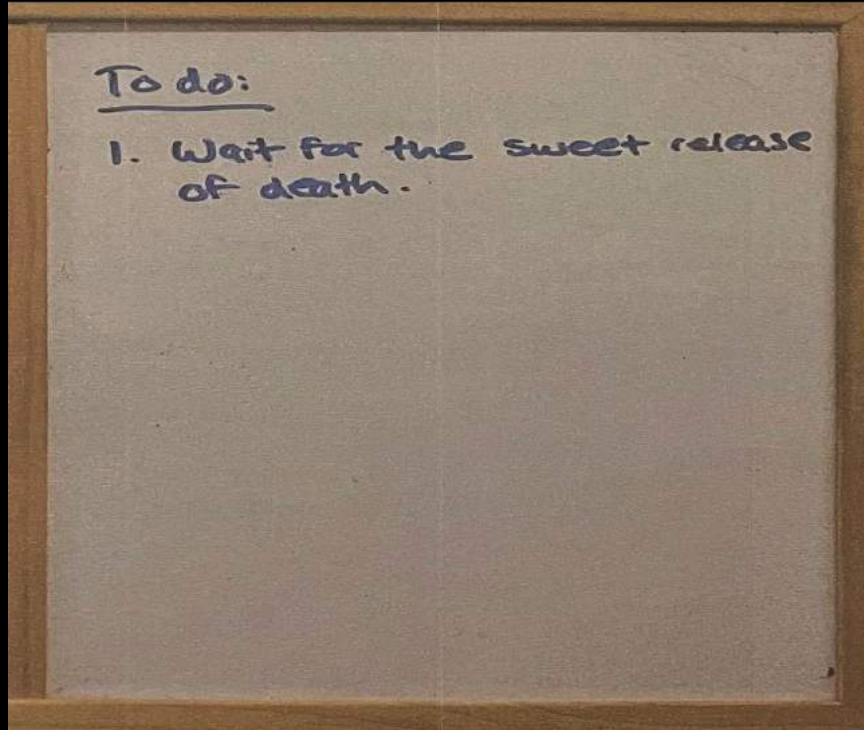 To do:
1. Wait for the sweet release
of death.